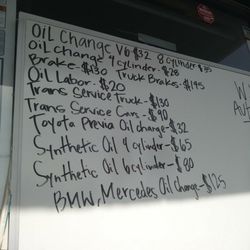 Oil Change V6 $32 8 cylinder $35
Oil change 4 cylinder - $28
Brake - $130 Truck Brakes - $145
Oil Labor - $20
Trans Service Truck - $130
Trans Service Cars - $90
Toyota Previa Oil change - $32
Synthetic Oil 4 cylinder - $65
Synthetic Oil 6 cylinder - $80
BMW, Mercedes Oil change - $125